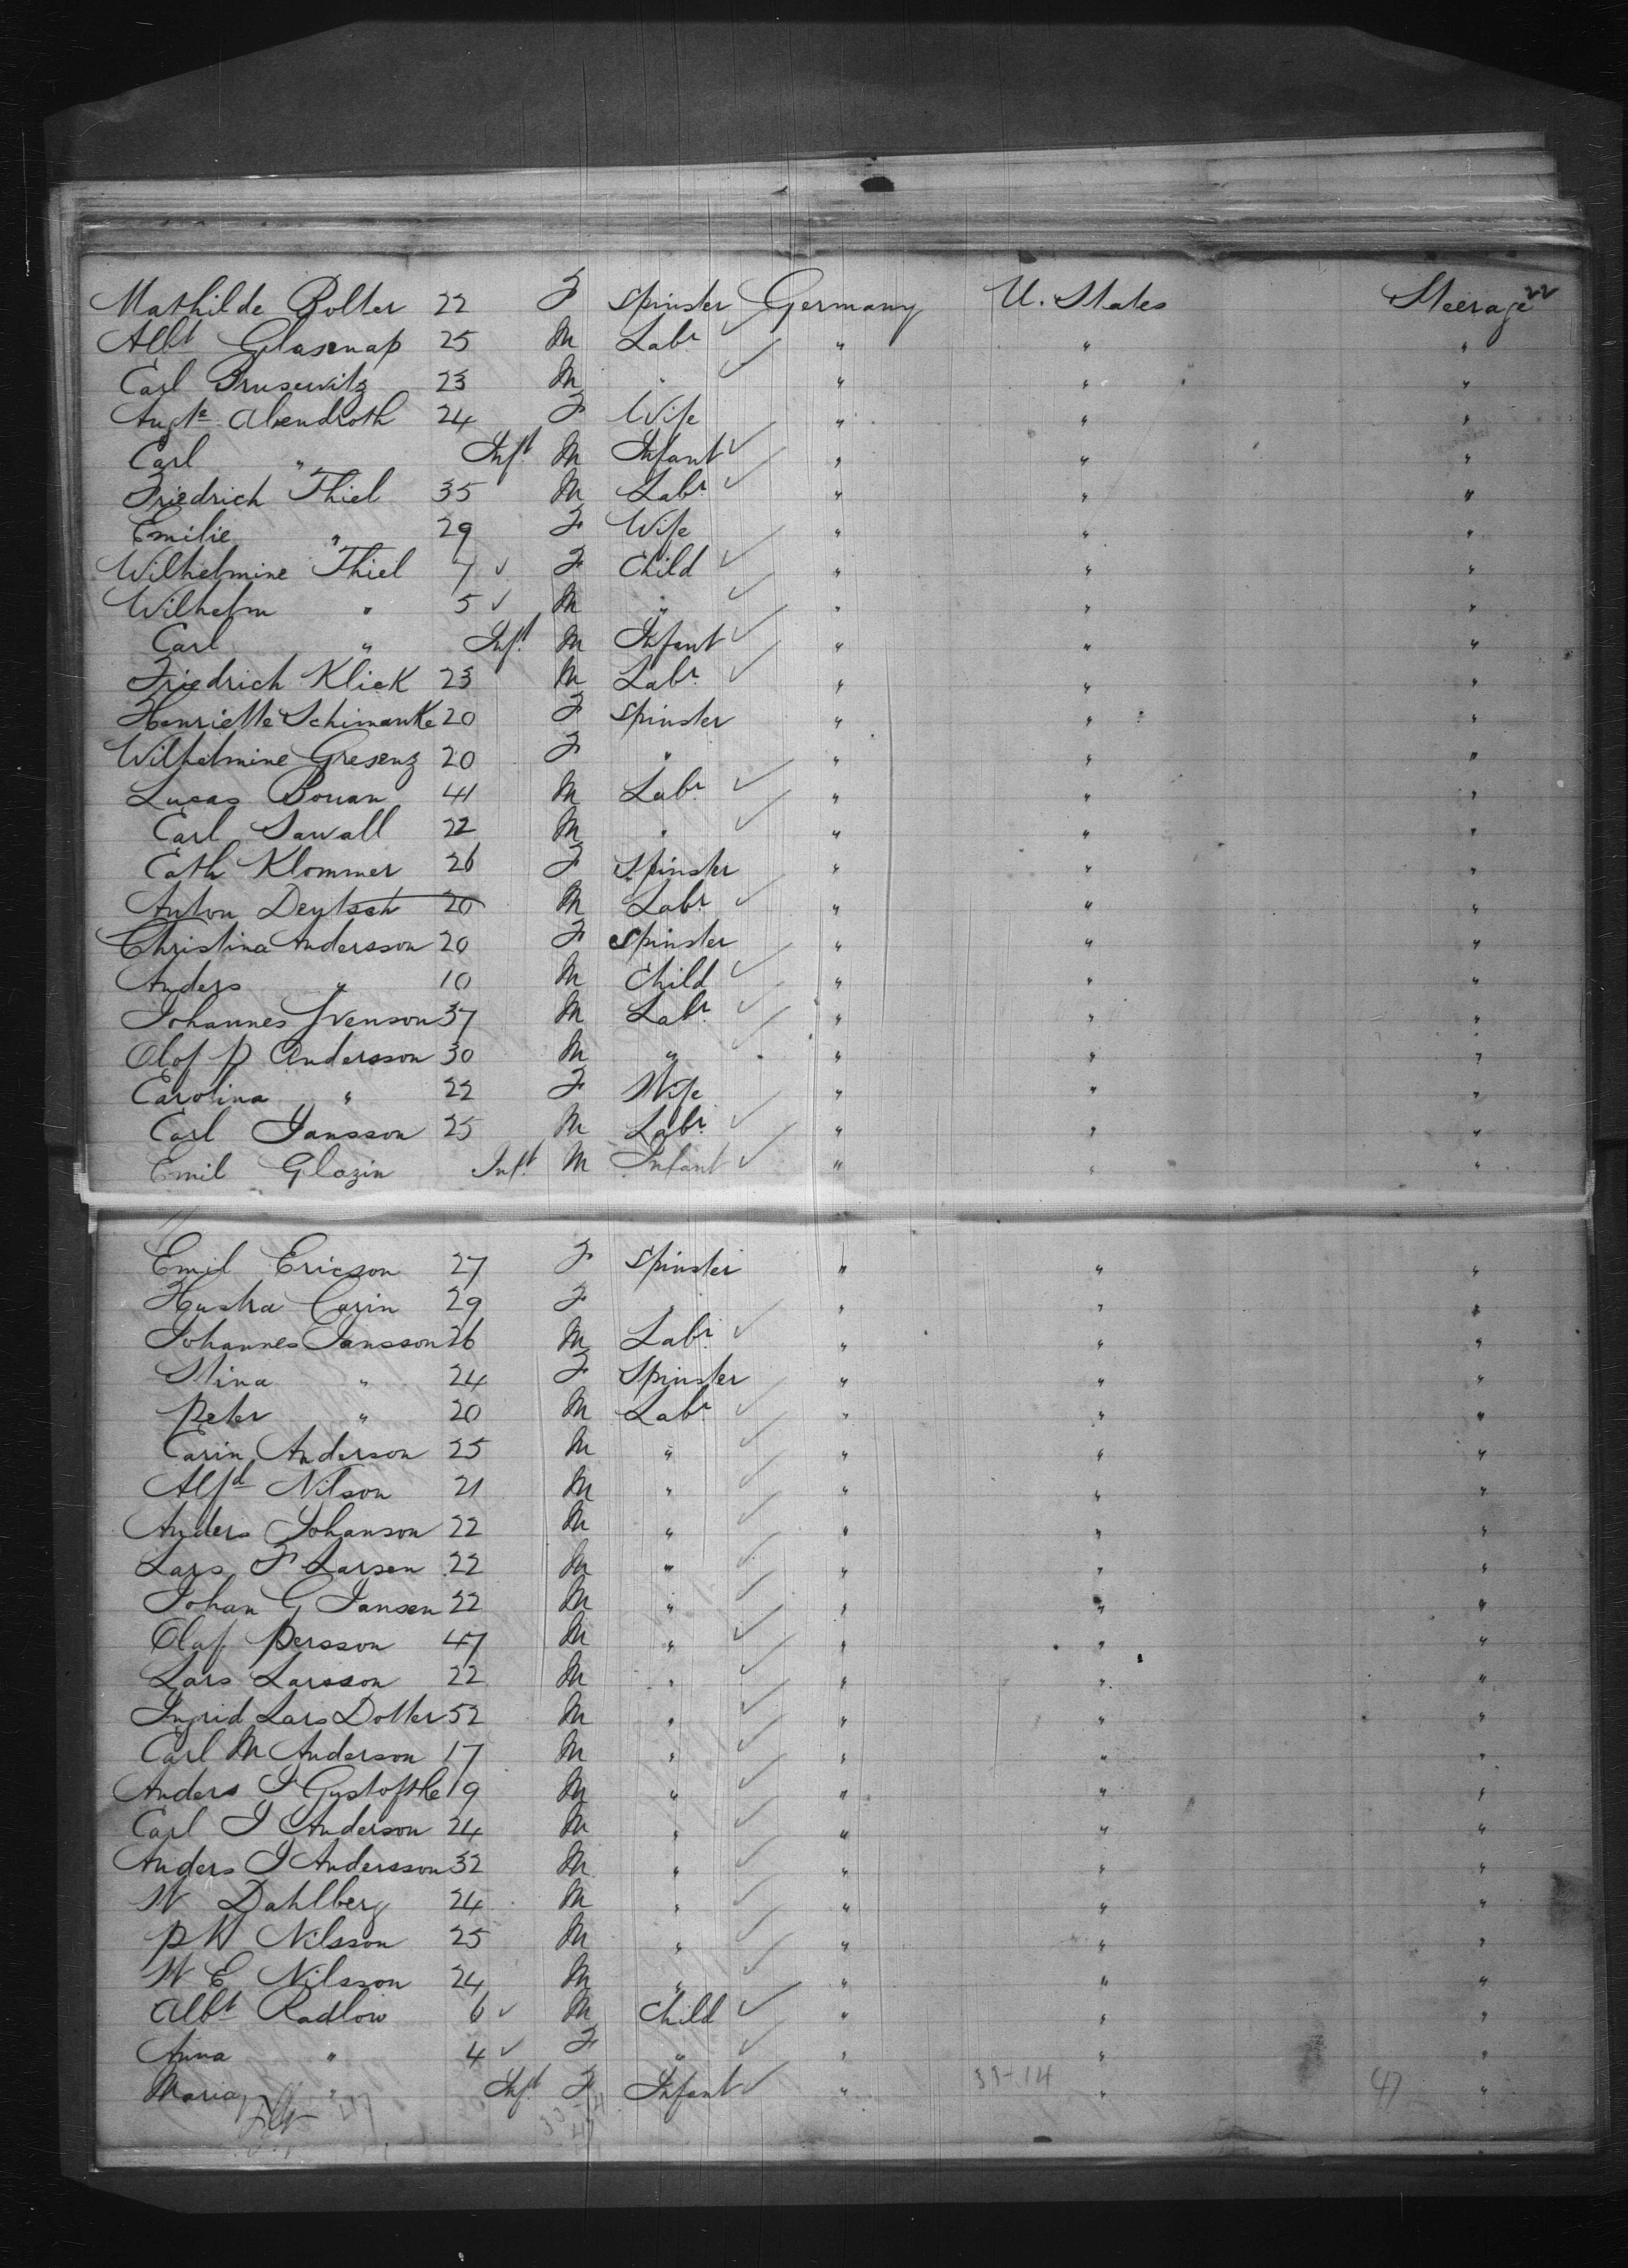 22
Mathilde Bolter 22 F Spinster Germany U. States Steerage
Albt Glasenap 25 M Labr " " "
Carl Brusewitz 23 M " " " "
Augte Abendroth 24 F Wife " " "
Carl " Inft M Infant " " "
Friedrich Thiel 35 M Labr " " "
Emilie " 29 F Wife " " "
Wilhelmine Thiel 7 F Child " " "
Wilhelm " 5 M " " " "
Carl " Inft M Infant " " "
Friedrich Klick 23 M Labr " " "
Henriette Schimanke 20 F Spinster " " "
Wilhelmine Gresenz 20 F " " " "
Lucas Bouan 41 M Labr " " "
Carl Sawall 22 M " " " "
Cath Klommer 26 F Spinster " " "
Anton Deytsch 20 M Labr " " "
Christina Andersson 20 F Spinster " " "
Anders " 10 M Child " " "
Johannes Svenson 37 M Labr " " "
Olof P Andersson 30 M " " " "
Carolina " 22 F Wife " " "
Carl Jansson 25 M Labr " " "
Emil Glazin Inft M Infant " " "
Emil Ericson 27 F Spinster " " "
Husha Carin 29 F " " " "
Johannes Jansson 26 M Labr " " "
Stina " 24 F Spinster " " "
Peter " 20 M Labr " " "
Carin Anderson 25 M " " " "
Alfd Nilson 21 M " " " "
Anders Johanson 22 M " " " "
Lars F Larsen 22 M " " " "
Johan G Jansen 22 M " " " "
Olaf Persson 47 M " " " "
Lars Larsson 22 M " " " "
Ingrid Lars Dotter 52 M " " " "
Carl M Anderson 17 M " " " "
Anders J Gustofthe 19 M " " " "
Carl J Anderson 24 M " " " "
Anders J Andersson 32 M " " " "
W Dahlberg 24 M " " " "
P W Nilsson 25 M " " " "
W E Nilsson 24 M " " " "
Albt Radlow 6 M Child " " "
Anna " 4 F " " " "
Maria " Inft F Infant " 33-14 " 47 "